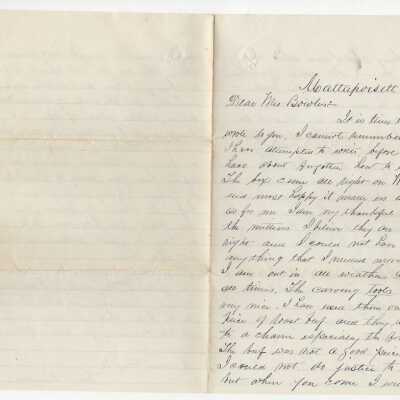 Mattapoisett
Dear Mrs Bowles
It is time
wrote to you, I cannot remember
I have attempted to write before
have about forgotten how to
The box came all right on
and most happy it made us
as for me I am thankful
the mittens I believe they
right and I could not have
anything that I needed more
I am out in all weathers
all times. The carving tools
very nice. I have used them
piece of roast beef and they
to a charm especially the
The beef was not a good piece
I could not do justice to
but when you come I